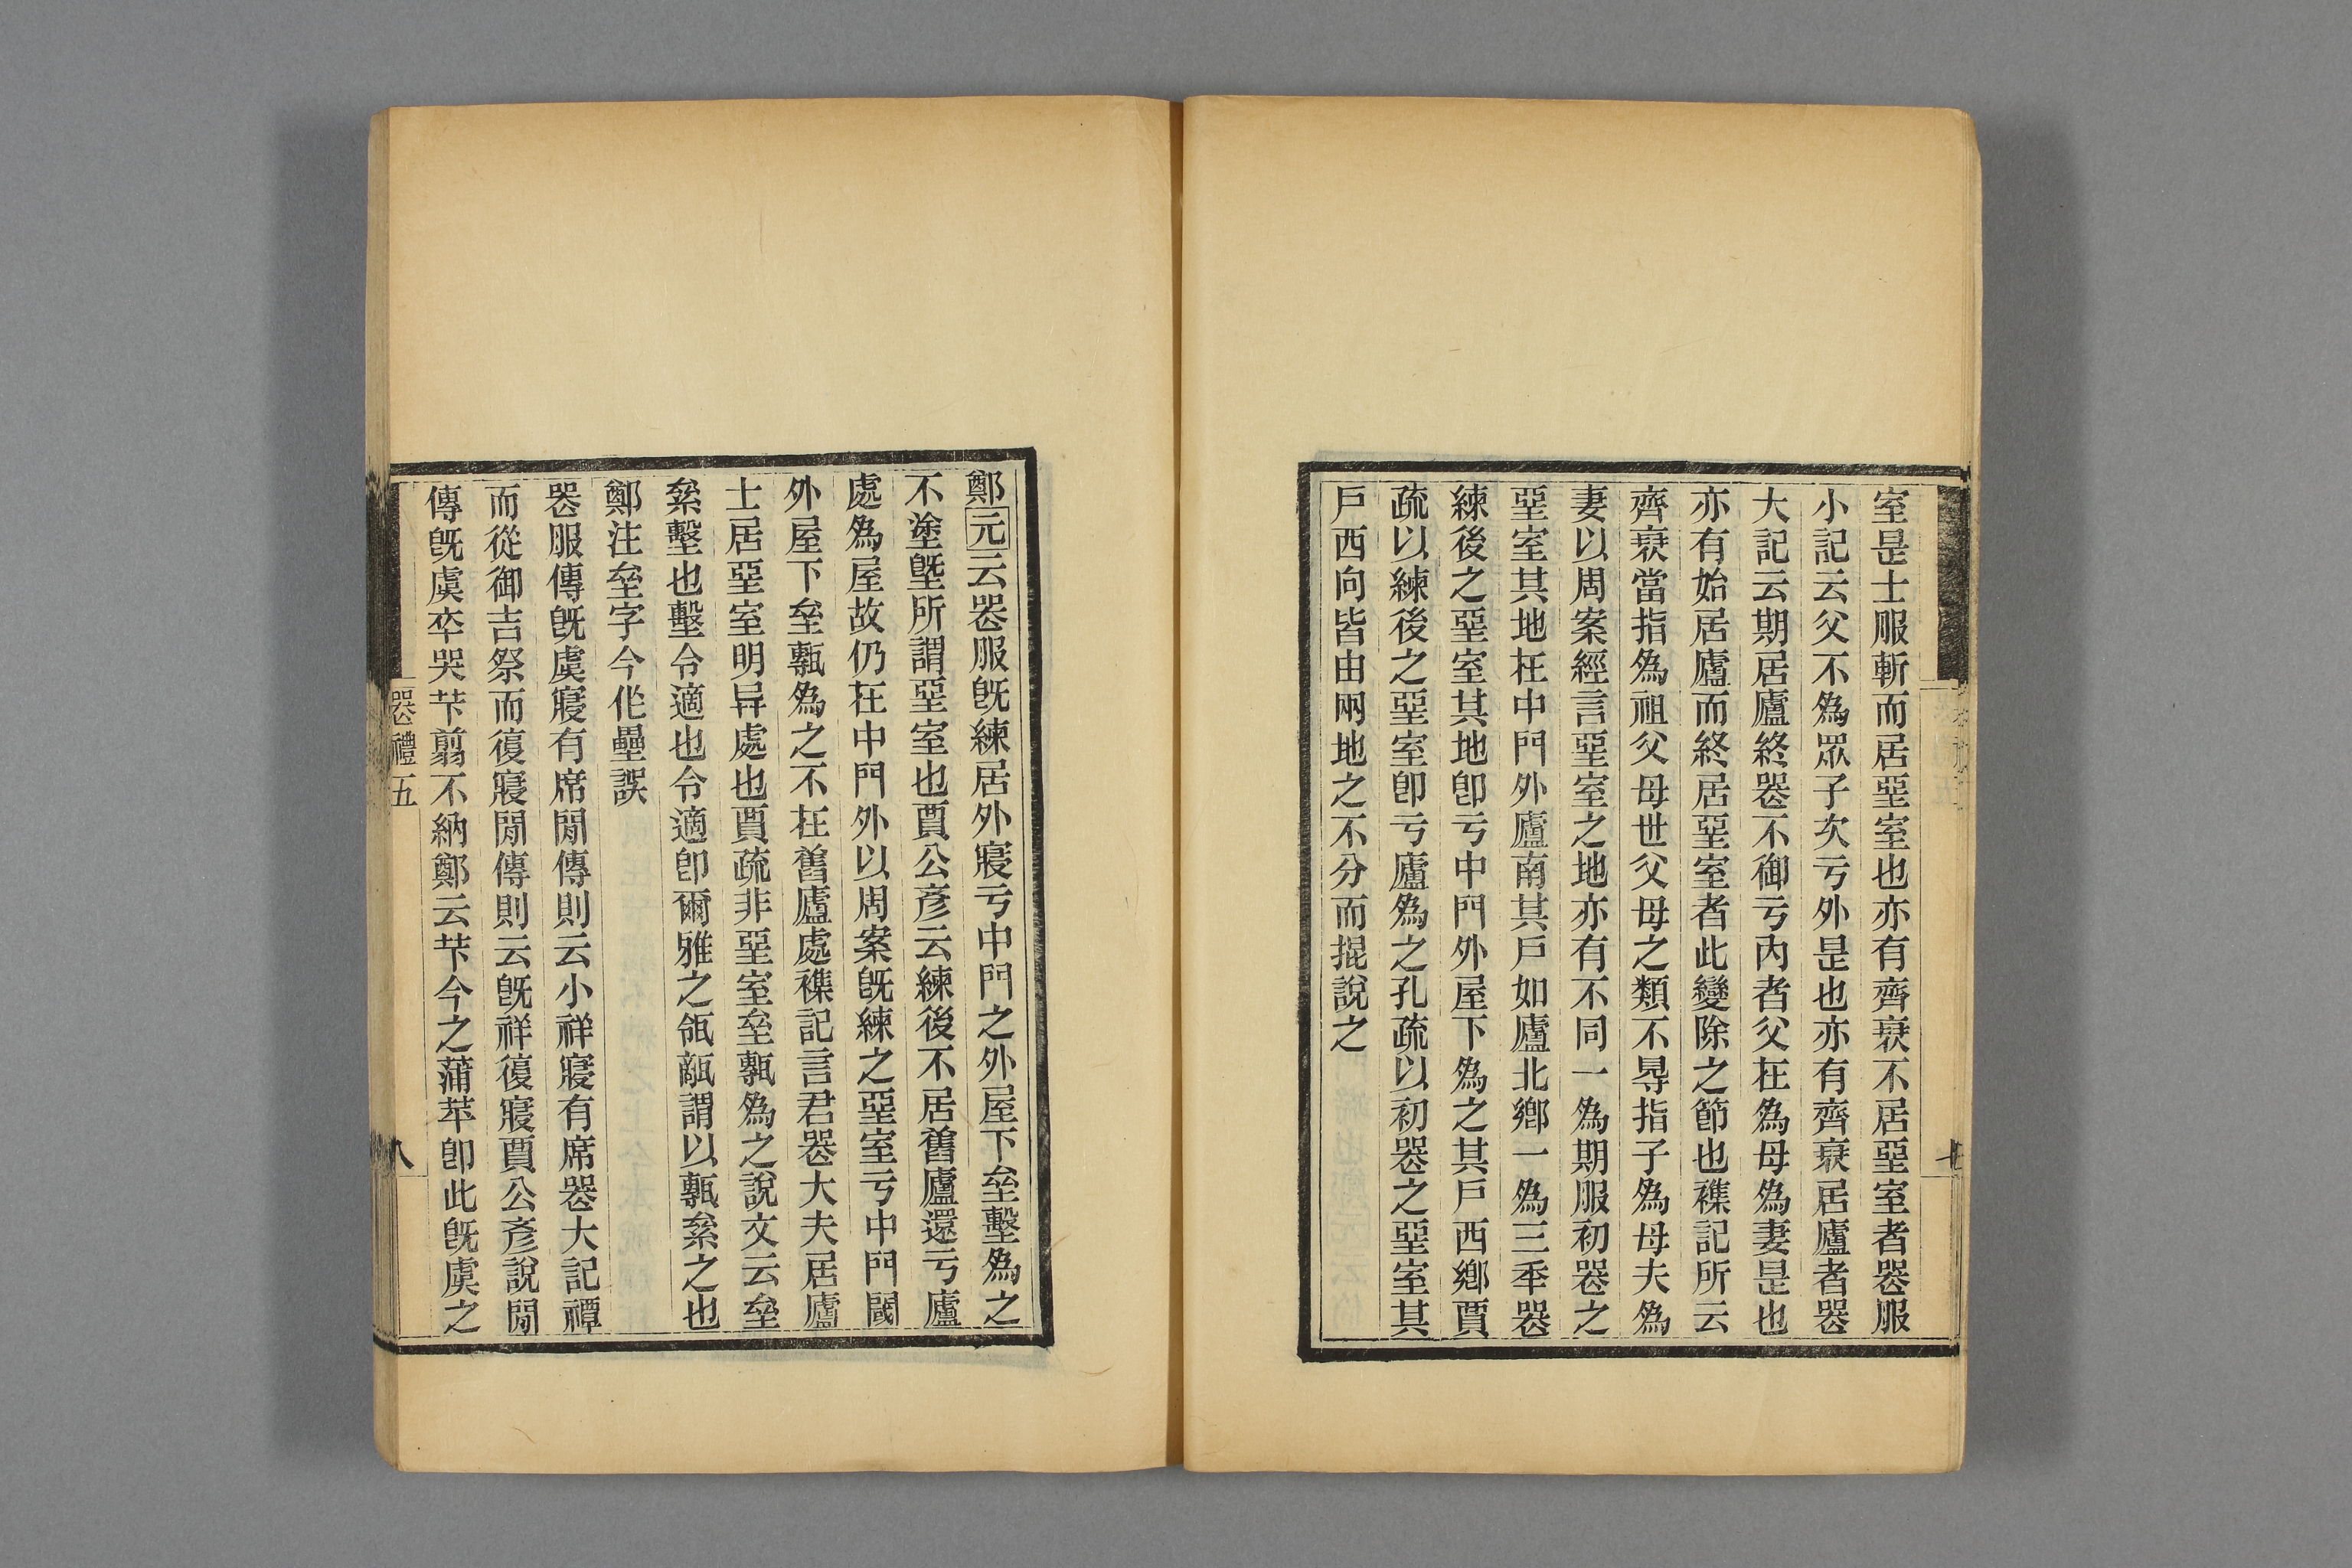 室是士服斬而居堊室也亦有齊衰不居堊室者喪服
小記云父不為眾子次亏外是也亦有齊衰居廬者喪
大記云期居廬終喪不御亏內者父在為母為妻是也
亦有始居廬而終居堊室者此變除之節也襍記所云
齊衰當指為祖父母世父母之類不㝵指子為母夫為
妻以周案經言堊室之地亦有不同一為期服初喪之
堊室其地在中門外廬南其戶如廬北鄉一為三年喪
練後之堊室其地卽亏中門外屋下為之其戶西鄉賈
疏以練後之堊室卽亏廬為之孔疏以初喪之堊室其
戶西向皆由兩地之不分而掍說之
鄭元云喪服旣練居外寢亏中門之外屋下垒墼為之
不塗塈所謂堊室也賈公彥云練後不居舊廬還亏廬
處為屋故仍在中門外以周案旣練之堊室亏中門閾
外屋下垒甎為之不在舊廬處襍記言君喪大夫居廬
士居堊室明异處也賈疏非堊室垒甎為之說文云垒
絫墼也墼令適也令適卽爾雅之瓴甋謂以甎絫之也
鄭注垒字今作壘誤
喪服傳旣虞寢有席閒傳則云小祥寢有席喪大記禫
而從御吉祭而復寢閒傳則云旣祥復寢賈公彥說閒
傳旣虞卒哭苄翦不納鄭云苄今之蒲苹卽此旣虞之
喪禮五
八